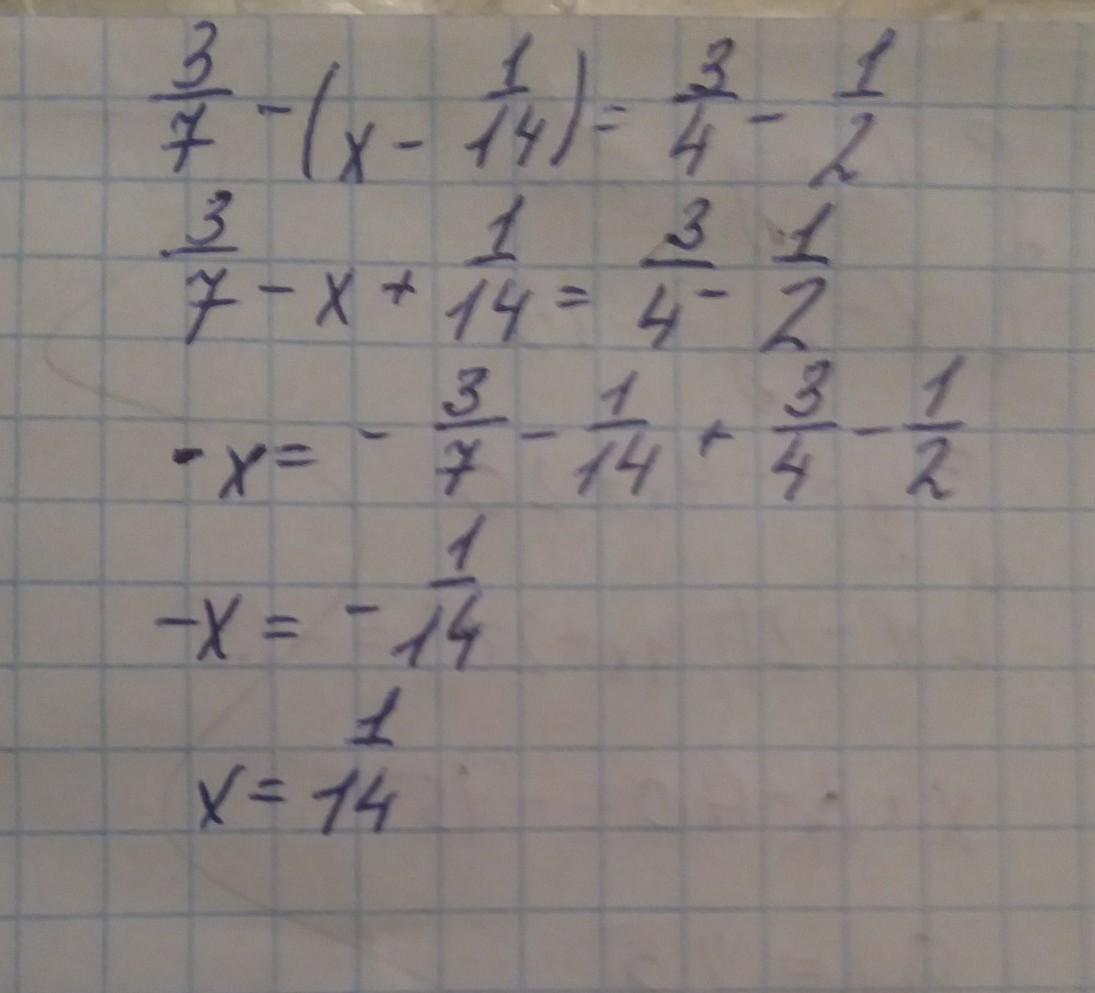 3/7 - (x - 1/14) = 3/4 - 1/2
3/7 - x + 1/14 = 3/4 - 1/2
-x = - 3/7 - 1/14 + 3/4 - 1/2
-x = - 1/14
x = 1/14